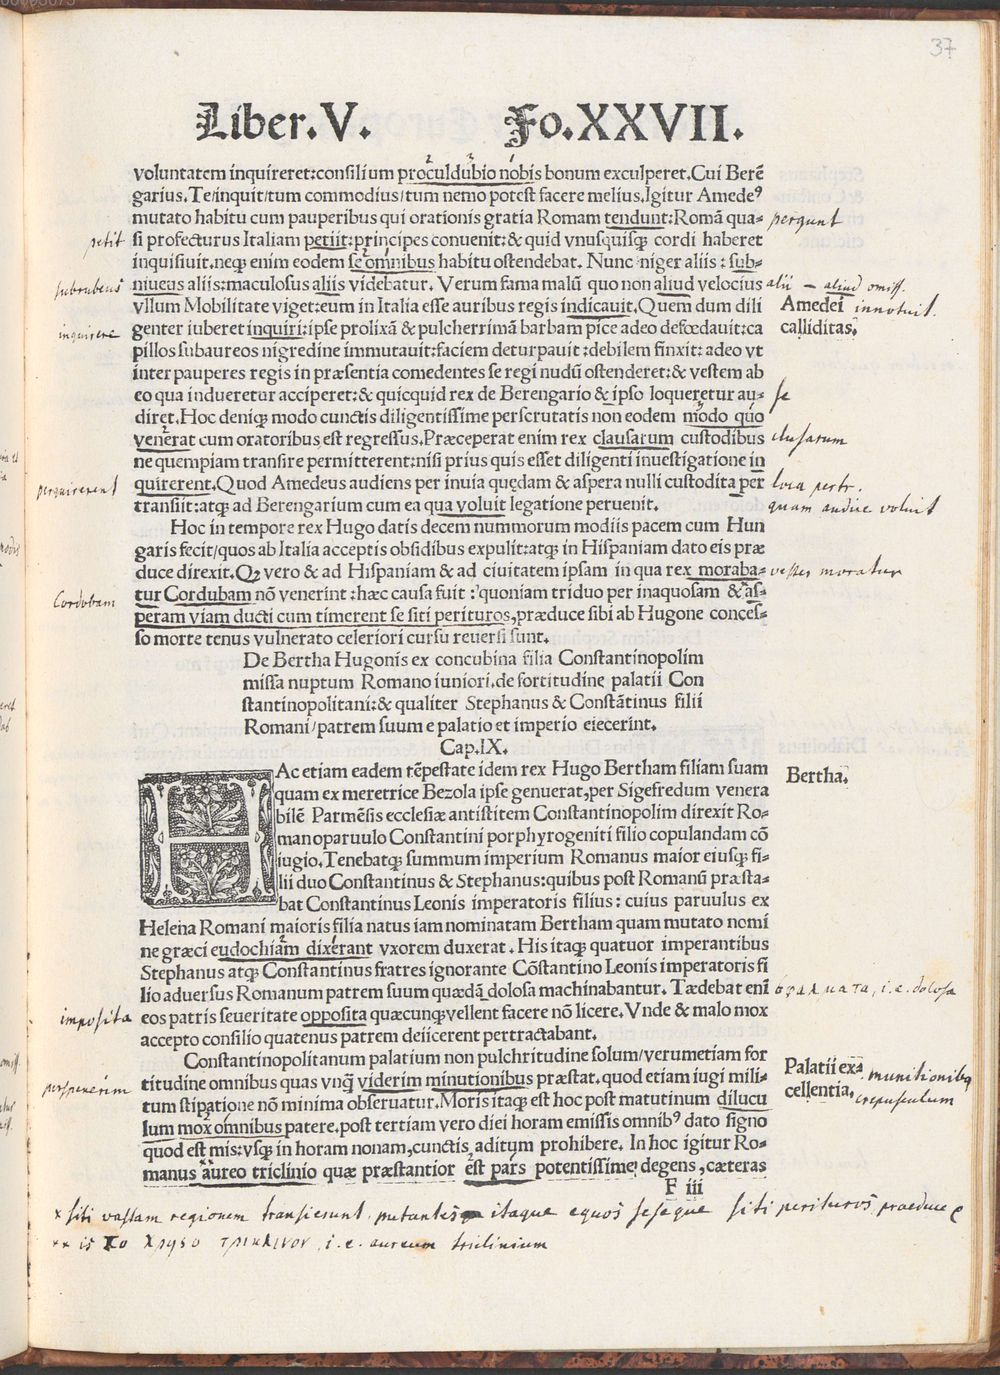 37
Liber.V. Fo.XXVII.
voluntatem inquireret:consilium proculdubio nobis bonum exculperet.Cui Berē
garius.Te/inquit/tum commodius/tum nemo potest facere melius.Igitur Amedeꝰ
mutato habitu cum pauperibus qui orationis gratia Romam tendunt:Romā qua-
pergunt
petit
si profecturus Italiam petiit:principes conuenit:& quid vnusquisqꝫ cordi haberet
inquisiuit.neqꝫ enim eodem se omnibus habitu ostendebat. Nunc niger aliis : sub-
subrubeus
niueus aliis:maculosus aliis videbatur. Verum fama malū quo non aliud velocius
alii — aliud omiss.
vllum Mobilitate viget:eum in Italia esse auribus regis indicauit.Quem dum dili
Amedei innotuit.
inquirere
genter iuberet inquiri:ipse prolixā & pulcherrimā barbam pice adeo defœdauit:ca
calliditas.
pillos subaureos nigredine immutauit:faciem deturpauit:debilem finxit:adeo vt
inter pauperes regis in præsentia comedentes se regi nudū ostenderet:& vestem ab
eo qua indueretur acciperet:& quicquid rex de Berengario & ipso loqueretur au-
se
diret.Hoc deniqꝫ modo cunctis diligentissime perscrutatis non eodem modo quo
venerat cum oratoribus est regressus.Præceperat enim rex clausarum custodibus
clusarum
ne quempiam transire permitterent:nisi prius quis esset diligenti inuestigatione in
perquirerent
quirerent.Quod Amedeus audiens per inuia quędam & aspera nulli custodita per
loca pertr.
transiit:atqꝫ ad Berengarium cum ea qua voluit legatione peruenit.
quam audire voluit
Hoc in tempore rex Hugo datis decem nummorum modiis pacem cum Hun
garis fecit/quos ab Italia acceptis obsidibus expulit:atqꝫ in Hispaniam dato eis præ
duce direxit.Qꝫ vero & ad Hispaniam & ad ciuitatem ipsam in qua rex moraba-
vester moratur
Cordobam
tur Cordubam nō venerint:hæc causa fuit :quoniam triduo per inaquosam & as-
peram viam ducti cum timerent se siti perituros,præduce sibi ab Hugone conces-
so morte tenus vulnerato celeriori cursu reuersi sunt.
De Bertha Hugonis ex concubina filia Constantinopolim
missa nuptum Romano iuniori.de fortitudine palatii Con
stantinopolitani:& qualiter Stephanus & Constātinus filii
Romani/patrem suum e palatio et imperio eiecerint.
Cap.IX.
HAc etiam eadem tēpestate idem rex Hugo Bertham filiam suam
Bertha.
quam ex meretrice Bezola ipse genuerat,per Sigefredum venera
bilē Parmēsis ecclesiæ antistitem Constantinopolim direxit Ro-
mano paruulo Constantini porphyrogeniti filio copulandam cō
iugio.Tenebatqꝫ summum imperium Romanus maior eiusqꝫ fi-
lii duo Constantinus & Stephanus:quibus post Romanū præsta-
bat Constantinus Leonis imperatoris filius : cuius paruulus ex
Helena Romani maioris filia natus iam nominatam Bertham quam mutato nomi
ne græci eudochiam dixerant vxorem duxerat . His itaqꝫ quatuor imperantibus
Stephanus atqꝫ Constantinus fratres ignorante Cōstantino Leonis imperatoris fi
lio aduersus Romanum patrem suum quædā dolosa machinabantur. Tædebat enī
i.e. dolosa
imposita
eos patris seueritate opposita quæcunqꝫ vellent facere nō licere. Vnde & malo mox
accepto consilio quatenus patrem deiicerent pertractabant.
Constantinopolitanum palatium non pulchritudine solum/verumetiam for
Palatii ex- munitionibꝫ
perspexerim
titudine omnibus quas vnqꝫ viderim minutionibus præstat.quod etiam iugi mili-
cellentia. crepusculum
tum stipatione nō minima obseruatur. Moris itaqꝫ est hoc post matutinum dilucu
lum mox omnibus patere.post tertiam vero diei horam emissis omnibꝰ dato signo
quod est mis:vsqꝫ in horam nonam,cunctis aditum prohibere. In hoc igitur Ro-
manus aureo triclinio quæ præstantior est pars potentissime degens,cæteras
F iii
× siti vastam regionem transierunt, putantes itaque equos seseque siti perituros praeduce
×× is το χρυσο τρικλινον, i.e. aureum triclinium